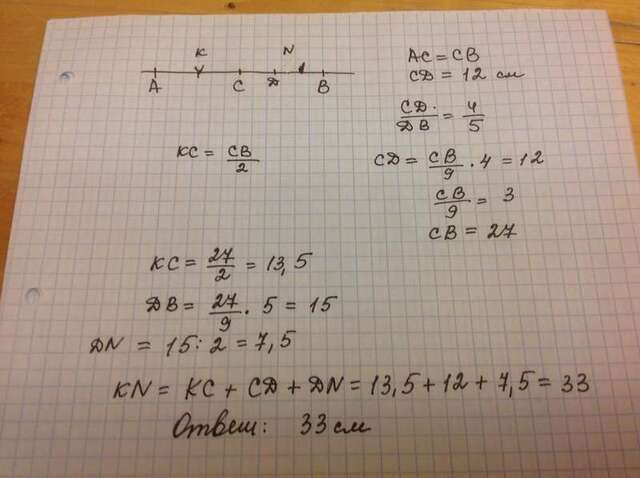 K N
A C D B
AC = CB
CD = 12 см
CD/DB = 4/5
KC = CB/2
CD = CB/9 · 4 = 12
CB/9 = 3
CB = 27
KC = 27/2 = 13,5
DB = 27/9 · 5 = 15
DN = 15 : 2 = 7,5
KN = KC + CD + DN = 13,5 + 12 + 7,5 = 33
Ответ: 33 см